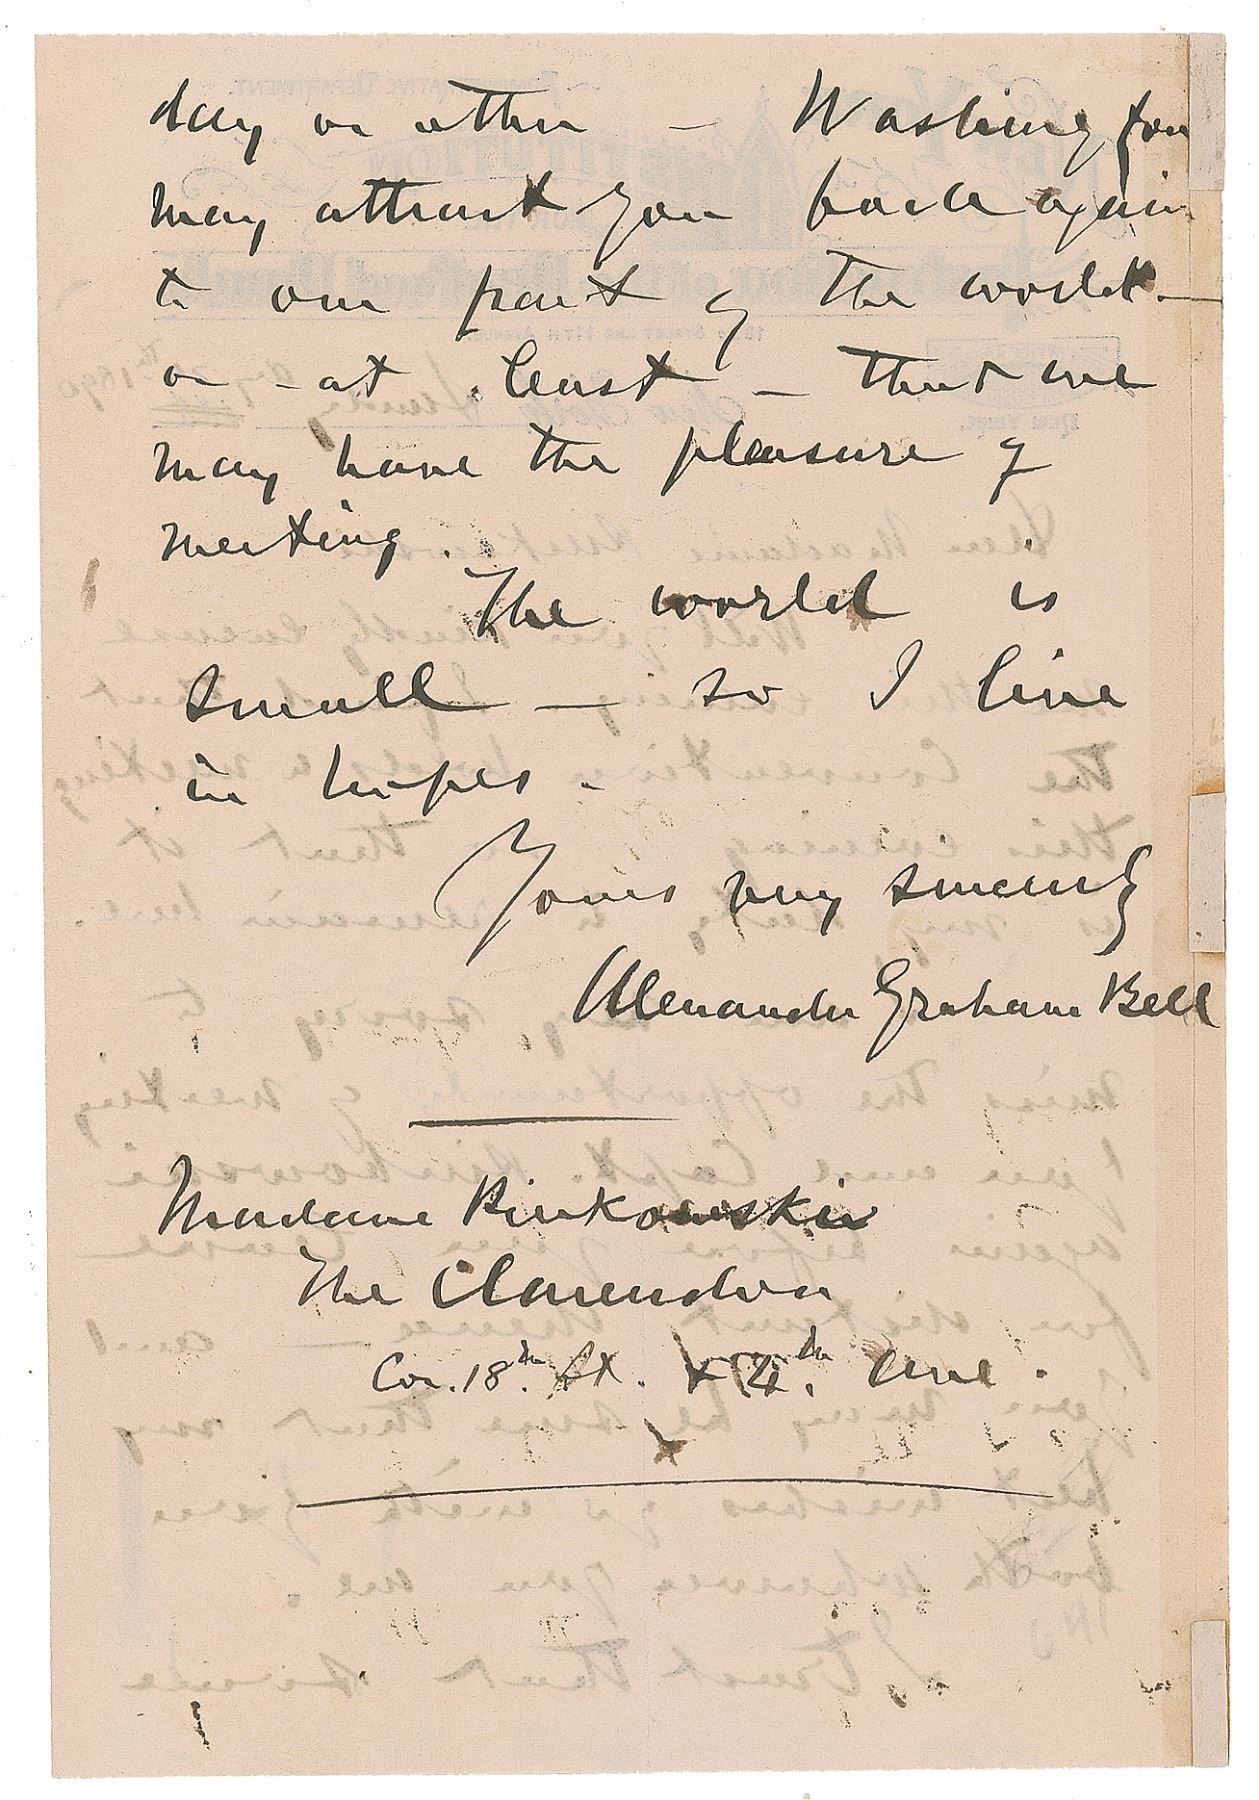 day or other — Washington
may attract you back again
to our part of the world —
or — at least — that we
may have the pleasure of
meeting.
The world is
small — so I live
in hopes.
Yours very sincerely
Alexander Graham Bell
Madame
The Clarendon
Cor. 18th St. & 4th Ave.